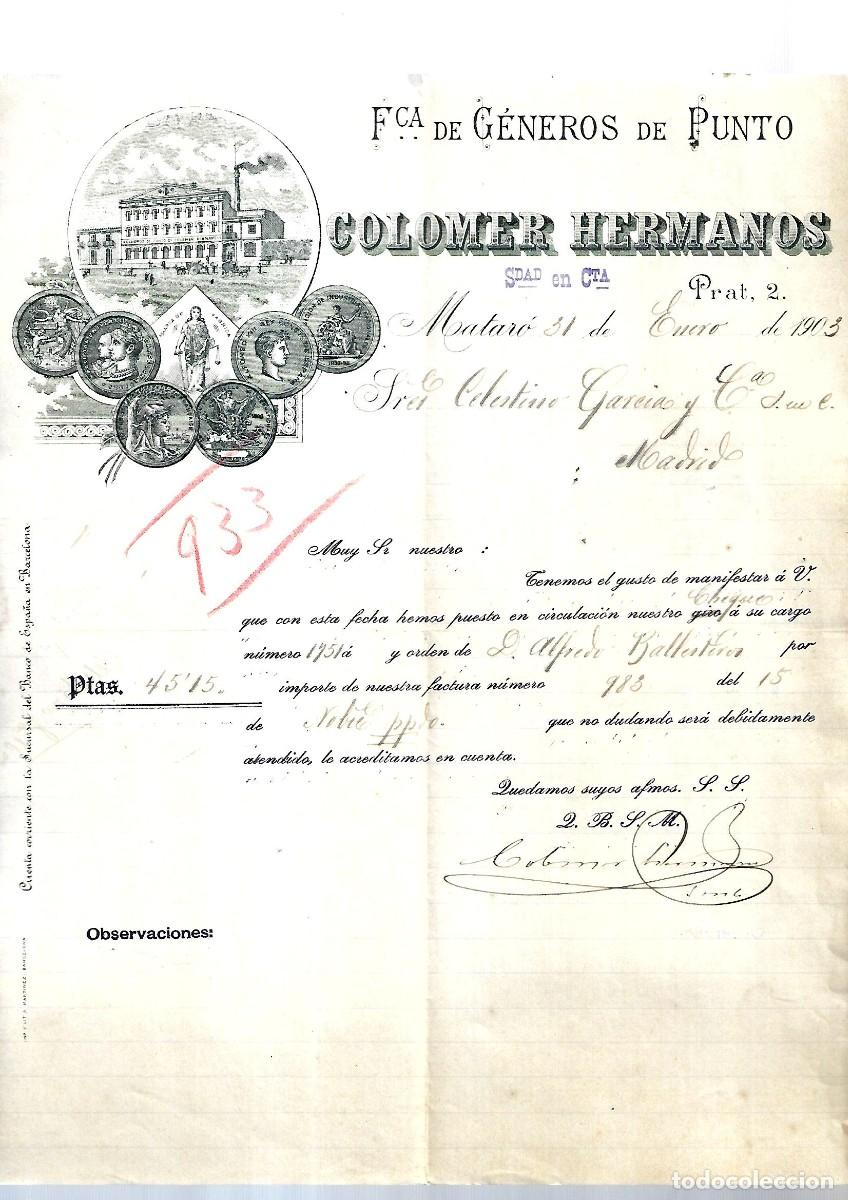 FCA DE GÉNEROS DE PUNTO
COLOMER HERMANOS
SDAD en CTA
Prat, 2.
MARCA DE FABRICA
Mataró 31 de Enero de 1903
Sres Celestino Garcia y Ca S. en C.
Madrid
933
Muy Sr nuestro :
Tenemos el gusto de manifestar á V.
Cheque
que con esta fecha hemos puesto en circulación nuestro giro á su cargo
número 1951 á y orden de D. Alfredo por
Ptas. 45'15.
importe de nuestra factura número 983 del 15
de ppdo. que no dudando será debidamente
atendido, le acreditamos en cuenta.
Quedamos suyos afmos. S. S.
Q. B. S. M.
Colomer Hermanos
S en C
Observaciones:
Cuenta corriente con la Sucursal del Banco de España en Barcelona
IMP. Y LIT. MARTINEZ, BARCELONA
todocoleccion